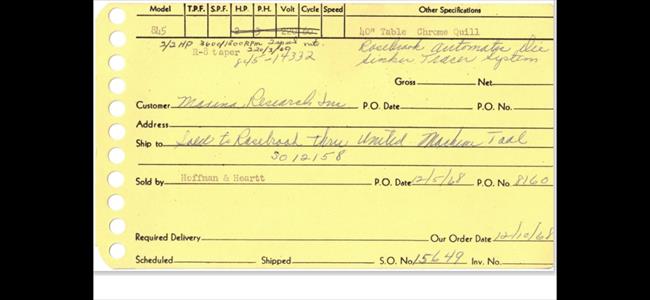 Model T.P.F. S.P.F. H.P. P.H. Volt Cycle Speed Other Specifications
845 2 3 220 60 40" Table Chrome Quill
3600/1800 RPM Rosebrook Automatic Die
R-8 taper 220/3/60 Sinker Tracer System
845-14332
Gross Net
Customer Research Inc P.O. Date P.O. No.
Address
Ship to Sold to Rosebrook thru United Machine Tool
3012158
Sold by Hoffman & Heartt P.O. Date 12/5/68 P.O. No 8160
Required Delivery Our Order Date 12/10/68
Scheduled Shipped S.O. No 15649 Inv. No.